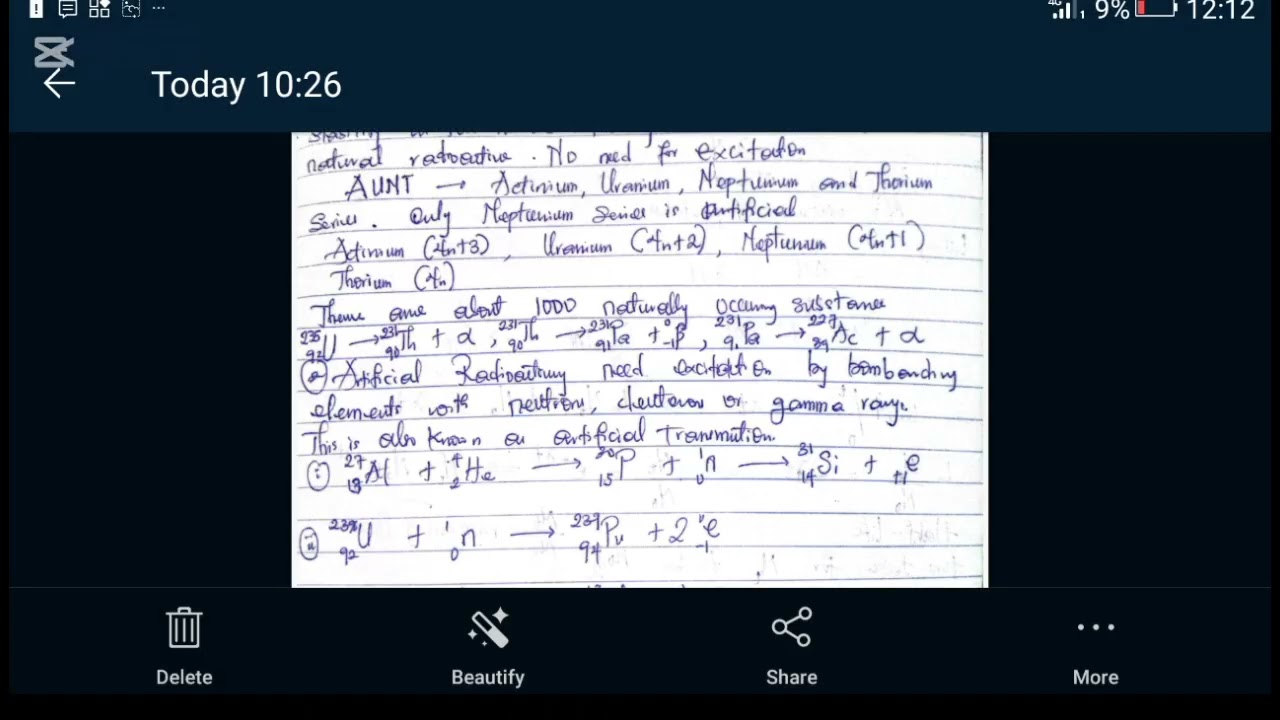 4G 1 9% 12:12
Today 10:26
natural radioactive. No need for excitation
AUNT → Actinium, Uranium, Neptunium and Thorium
Series. Only Neptunium Series is Artificial
Actinium (4n+3), Uranium (4n+2), Neptunium (4n+1)
Thorium (4n)
There are about 1000 naturally occuring substance
²³⁵₉₂U → ²³¹₉₀Th + α, ²³¹₉₀Th → ²³¹₉₁Pa + ⁰₋₁β, ²³¹₉₁Pa → ²²⁷₈₉Ac + α
Artificial need excitation by
elements with neutron, or gamma rays.
This is also known as artificial
(i) ²⁷₁₃Al + ⁴₂He → ³⁰₁₅P + ¹₀n → ³¹₁₄Si + ₊₁e
(ii) ₉₂U + ¹₀n → ²³⁹₉₄Pu + 2 ⁰₋₁e
Delete
Beautify
Share
More